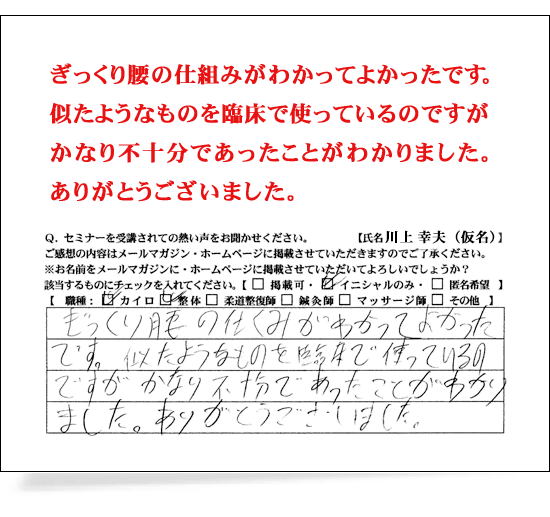 ぎっくり腰の仕組みがわかってよかったです。
似たようなものを臨床で使っているのですが
かなり不十分であったことがわかりました。
ありがとうございました。
Q. セミナーを受講されての熱い声をお聞かせください。 【氏名 川上 幸夫（仮名）】
ご感想の内容はメールマガジン・ホームページに掲載させていただきますのでご了承ください。
※お名前をメールマガジンに・ホームページに掲載させていただいてよろしいでしょうか？
該当するものにチェックを入れてください。【 □ 掲載可・ ☑ イニシャルのみ・ □ 匿名希望 】
【 職種： ☑ カイロ ☑ 整体 □ 柔道整復師 □ 鍼灸師 □ マッサージ師 □ その他 】
ぎっくり腰の仕くみがわかってよかった
です。似たようなものを臨床で使っているの
ですがかなり不十分であったことがわかり
ました。ありがとうございました。